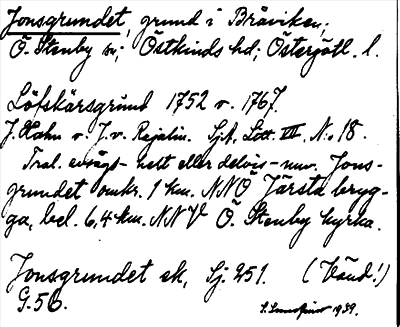 Jonsgrundet, grund i Bråviken,
Ö. Stenby sn; Östkinds hd; Östergötl. l.
Löfskärsgrund 1752 o. 1767.
J. Hahn o. J. v. Rejalin. Sjk, Litt. VII, N:o 18.
Trol. avsågs helt eller delvis nuv. Jons-
grundet omkr. 1 km. NNÖ Järsta bryg-
ga, bel. 6,4 km. NNV Ö. Stenby kyrka.
Jonsgrundet ek, Sj. 251. (Vänd!)
G. 56. 1939.